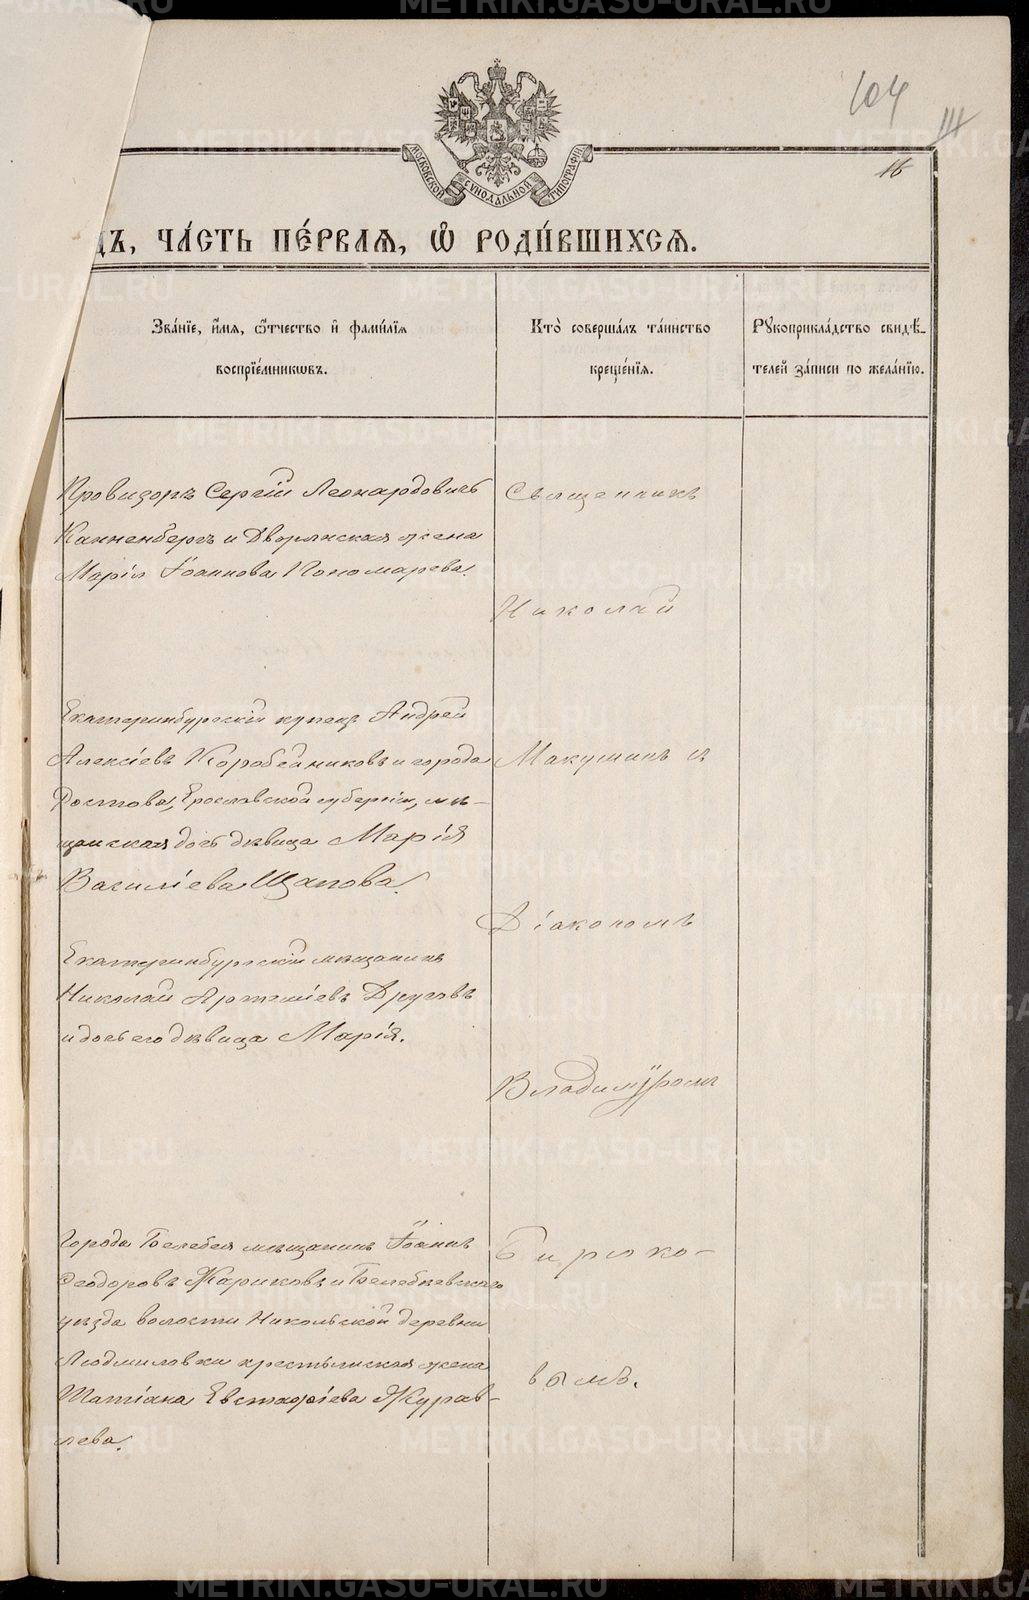 METRIKI.GASO-URAL.RU
104
111
16
МОСКОВСКОЙ СѴНОДАЛЬНОЙ ТИПОГРАФІИ
дъ, ча́сть пе́рваѧ, ѡ҆ роди́вшихсѧ.
Зва́нїе, и҆́мѧ, ѻ҆́тчество и҆ фами́лїѧ
воспрїе́мникѡвъ.
Кто̀ соверша́лъ та́инство
креще́нїѧ.
Рꙋкоприкла́дство свидѣ́-
телей за́писи по жела́нїю.
Провизоръ Сергій Леонардовичъ
Канненбергъ и Дворянская жена
Марія Іоаннова Пономарева.
Екатеринбургскій купецъ Андрей
Алексіевъ Коробейниковъ и города
Ростова, Ярославской губерніи, мѣ-
щанская дочь дѣвица Марія
Василіева Щапова.
Екатеринбургскій мѣщанинъ
Николай Артеміевъ Друговъ
и дочь его дѣвица Марія.
Города Белебея мѣщанинъ Іоаннъ
Ѳеодоровъ Жариковъ и Белебеевскаго
уѣзда волости Никольской деревни
Людмиловки крестьянская жена
Татіана Евстафіева Журав-
лева.
Священникъ
Николай
Макушинъ съ
Діакономъ
Владиміромъ
Бирюко-
вымъ.